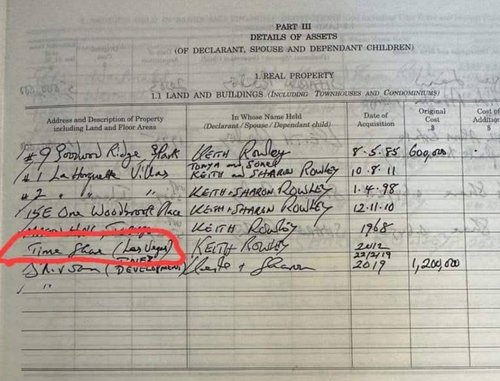 PART III
DETAILS OF ASSETS
(OF DECLARANT, SPOUSE AND DEPENDANT CHILDREN)
1. REAL PROPERTY
1.1 LAND AND BUILDINGS (INCLUDING TOWNHOUSES AND CONDOMINIUMS)
Address and Description of Property including Land and Floor Areas
In Whose Name Held (Declarant / Spouse / Dependant child)
Date of Acquisition
Original Cost $
Cost of $
#9 Goodwood Ridge KEITH ROWLEY 8.5.85 600,000
#1 La Horquette Villas KEITH and SHARON ROWLEY 10.8.11
#2 " " KEITH + SHARON ROWLEY 1.4.98
15E One Woodbrook Place KEITH + SHARON ROWLEY 12.11.10
KEITH ROWLEY 1968
Time Share (Las Vegas) KEITH ROWLEY 2012
22/2/19
(DEVELOPMENT) + Sharon 2019 1,200,000
" "